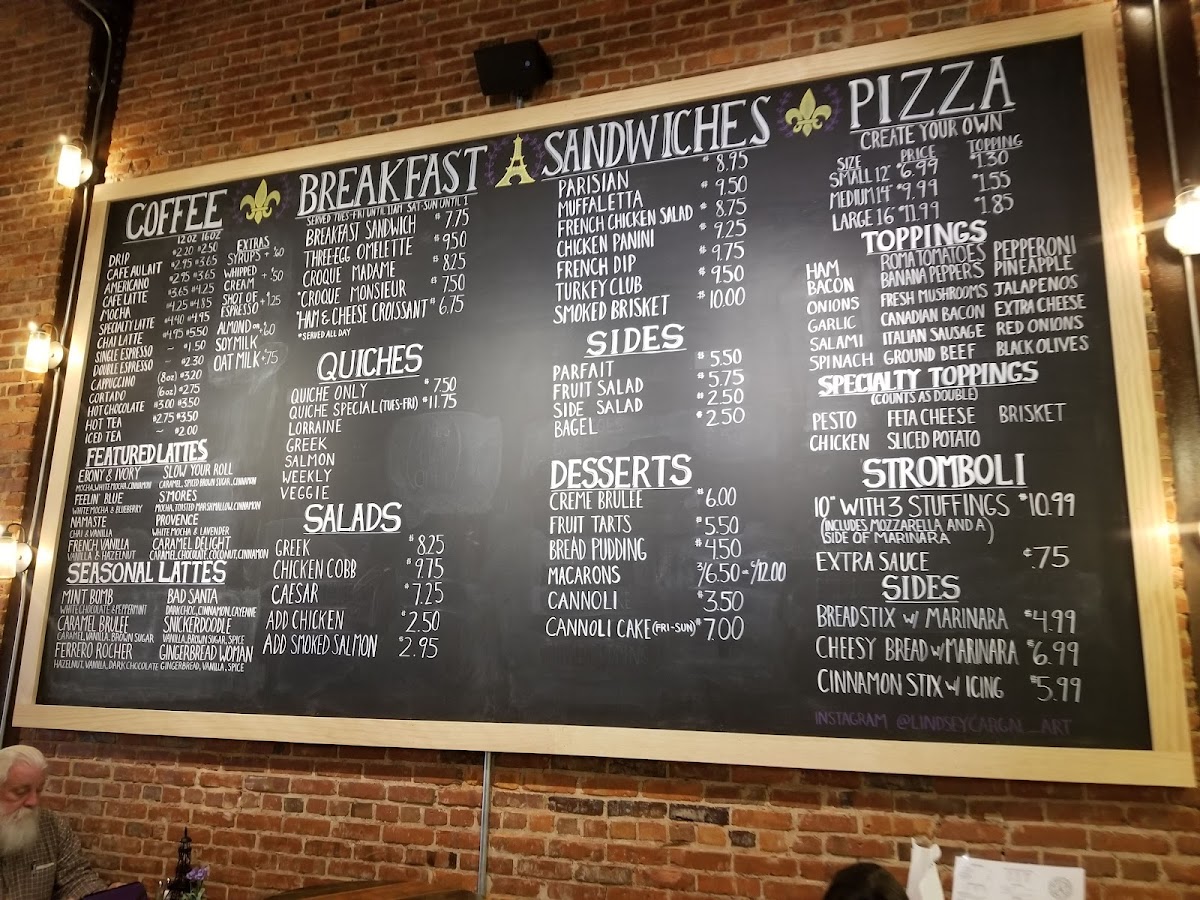 COFFEE
12 OZ 16 OZ
DRIP $2.20 $2.50
CAFE AU LAIT $2.95 $3.65
AMERICANO $2.95 $3.65
CAFE LATTE $3.65 $4.25
MOCHA $4.25 $4.85
SPECIALTY LATTE $4.40 $4.95
CHAI LATTE $4.95 $5.50
SINGLE ESPRESSO - $1.50
DOUBLE ESPRESSO - $2.30
CAPPUCCINO (8oz) $3.20
CORTADO (6oz) $2.75
HOT CHOCOLATE $3.00 $3.50
HOT TEA $2.75 $3.50
ICED TEA - $2.00
EXTRAS
SYRUPS + .60
WHIPPED CREAM + .50
SHOT OF ESPRESSO + 1.25
ALMOND OR SOY MILK + .60
OAT MILK + .75
FEATURED LATTES
EBONY & IVORY
MOCHA, WHITE MOCHA, CINNAMON
FEELIN' BLUE
WHITE MOCHA & BLUEBERRY
NAMASTE
CHAI & VANILLA
FRENCH VANILLA
VANILLA & HAZELNUT
SLOW YOUR ROLL
CARAMEL, SPICED BROWN SUGAR, CINNAMON
S'MORES
MOCHA, TOASTED MARSHMALLOW, CINNAMON
PROVENCE
WHITE MOCHA & LAVENDER
CARAMEL DELIGHT
CARAMEL, CHOCOLATE, COCONUT, CINNAMON
SEASONAL LATTES
MINT BOMB
WHITE CHOCOLATE & PEPPERMINT
CARAMEL BRULEE
CARAMEL, VANILLA, BROWN SUGAR
FERRERO ROCHER
HAZELNUT, VANILLA, DARK CHOCOLATE
BAD SANTA
DARK CHOC, CINNAMON, CAYENNE
SNICKERDOODLE
VANILLA, BROWN SUGAR, SPICE
GINGERBREAD WOMAN
GINGERBREAD, VANILLA, SPICE
BREAKFAST
SERVED TUES-FRI UNTIL 11AM SAT-SUN UNTIL 1
BREAKFAST SANDWICH $7.75
THREE-EGG OMELETTE $9.50
CROQUE MADAME $8.25
*CROQUE MONSIEUR $7.50
*HAM & CHEESE CROISSANT $6.75
*SERVED ALL DAY
QUICHES
QUICHE ONLY $7.50
QUICHE SPECIAL (TUES-FRI) $11.75
LORRAINE
GREEK
SALMON
WEEKLY
VEGGIE
SALADS
GREEK $8.25
CHICKEN COBB $9.75
CAESAR $7.25
ADD CHICKEN $2.50
ADD SMOKED SALMON $2.95
SANDWICHES
PARISIAN $8.95
MUFFALETTA $9.50
FRENCH CHICKEN SALAD $8.75
CHICKEN PANINI $9.25
FRENCH DIP $9.75
TURKEY CLUB $9.50
SMOKED BRISKET $10.00
SIDES
PARFAIT $5.50
FRUIT SALAD $5.75
SIDE SALAD $2.50
BAGEL $2.50
DESSERTS
CREME BRULEE $6.00
FRUIT TARTS $5.50
BREAD PUDDING $4.50
MACARONS 3/6.50 - 6/12.00
CANNOLI $3.50
CANNOLI CAKE (FRI-SUN) $7.00
PIZZA
CREATE YOUR OWN
SIZE PRICE TOPPING
SMALL 12" $6.99 $1.30
MEDIUM 14" $9.99 $1.55
LARGE 16" $11.99 $1.85
TOPPINGS
HAM ROMA TOMATOES PEPPERONI
BACON BANANA PEPPERS PINEAPPLE
ONIONS FRESH MUSHROOMS JALAPENOS
GARLIC CANADIAN BACON EXTRA CHEESE
SALAMI ITALIAN SAUSAGE RED ONIONS
SPINACH GROUND BEEF BLACK OLIVES
SPECIALTY TOPPINGS
(COUNTS AS DOUBLE)
PESTO FETA CHEESE BRISKET
CHICKEN SLICED POTATO
STROMBOLI
10" WITH 3 STUFFINGS $10.99
(INCLUDES MOZZARELLA AND A
SIDE OF MARINARA)
EXTRA SAUCE ¢.75
SIDES
BREADSTIX W/ MARINARA $4.99
CHEESY BREAD W/ MARINARA $6.99
CINNAMON STIX W/ ICING $5.99
INSTAGRAM @LINDSEYCARGAL_ART